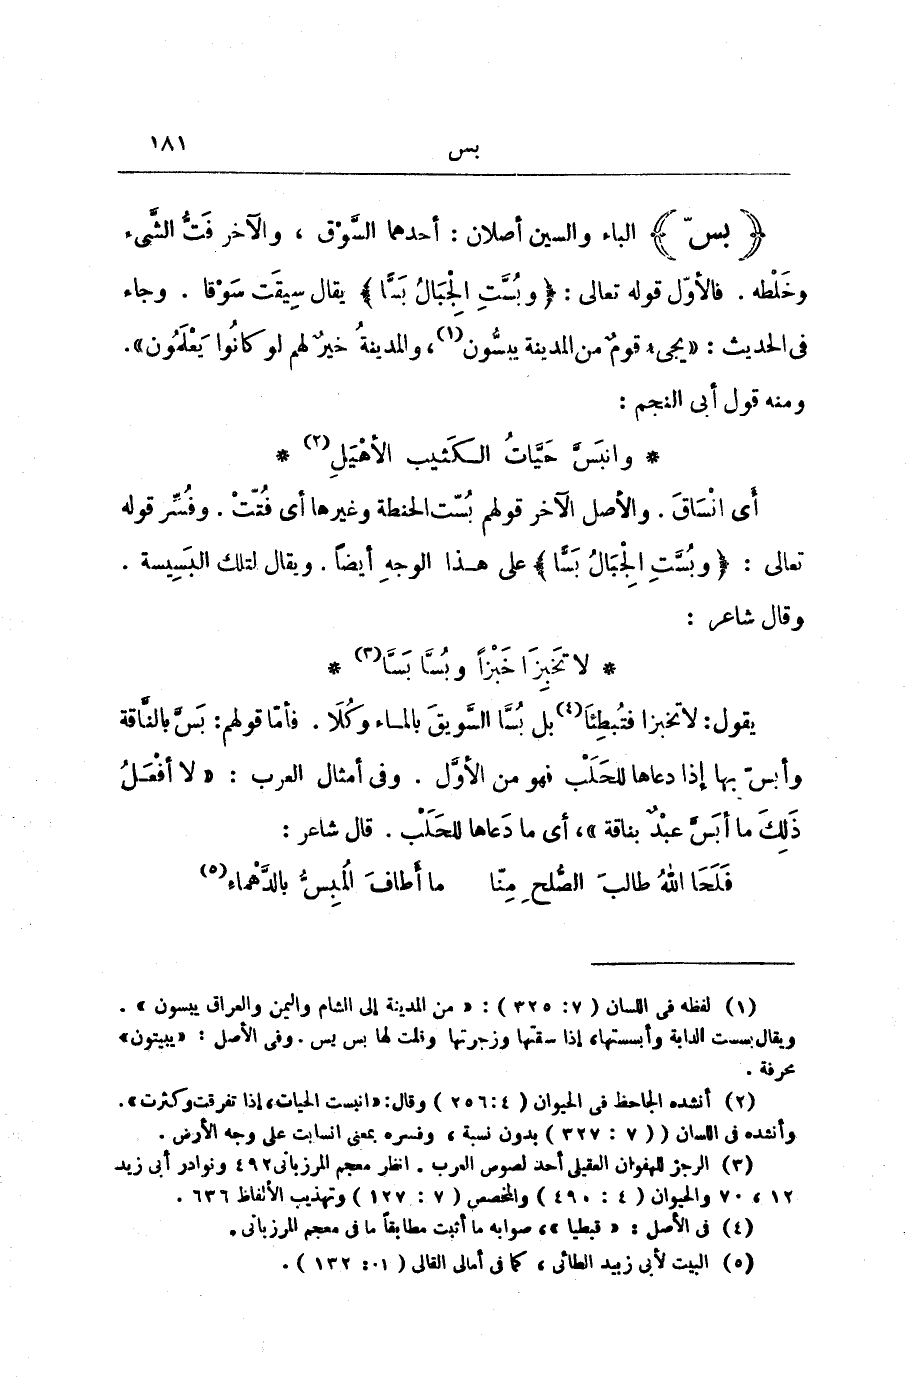 بس ١٨١
﴿ بسّ ﴾ الباء والسين أصلان : أحدهما السَّوْق ، والآخر فَتُّ الشَّىء
وخَلْطه . فالأوّل قوله تعالى : ﴿ وبُسَّتِ الْجِبَالُ بَسًّا ﴾ يقال سِيقَت سَوْقا . وجاء
فى الحديث : « يجىء قومٌ من المدينة يبسُّون(١) ، والمدينةُ خيرٌ لهم لو كانُوا يَعْلَمُون » .
ومنه قول أبى النجم :
* وانبَسَّ حَيَّاتُ الكَثيب الأهْيَلِ(٢) *
أَى انْسَاقَ . والأصل الآخر قولهم بُسّت الحنطة وغيرها أى فُتّتْ . وفُسِّر قوله
تعالى : ﴿ وبُسَّتِ الْجِبَالُ بَسًّا ﴾ على هـذا الوجهِ أيضاً . ويقال لتلك البَسِيسة .
وقال شاعر :
* لا تَخبِزَا خَبْزاً وبُسَّا بَسَّا(٣) *
يقول : لا تخبزا فتُبطِئَا(٤) بل بُسَّا السَّويقَ بالمـاء وكُلَا . فأمّا قولهم : بَسَّ بالنَّاقة
وأبسّ بها إذا دعاها للحَلَبْ فهو من الأوَّل . وفى أمثال العرب : « لا أفْعَلُ
ذَلِكَ ما أبَسَّ عبْدٌ بناقة » ، أى ما دَعاها للحَلَبْ . قال شاعر :
فَلَحَا اللهُ طالبَ الصُّلحِ مِنّا ما أَطافَ الُمبِسُّ بالدَّهْماء(٥)
(١) لفظه فى اللسان ( ٧ : ٣٢٥ ) : « من المدينة إلى الشام واليمن والعراق يبسون » .
ويقال بسست الدابة وأبسستها، إذا سقتها وزجرتها وقلت لها بس بس . وفى الأصل : « يبيتون »
محرفة .
(٢) أنشده الجاحظ فى الحيوان ( ٤ : ٢٥٦ ) وقال : « انبست الحيات، إذا تفرقت وكثرت » .
وأنشده فى اللسان ( ( ٧ : ٣٢٧ ) بدون نسبة ، وفسره بمعنى انسابت على وجه الأرض .
(٣) الرجز للهفوان العقيلى أحد لصوص العرب . انظر معجم المرزبانى ٤٩٢ ونوادر أبى زيد
١٢ ، ٧٠ والحيوان ( ٤ : ٤٩٠ ) والمخصص ( ٧ : ١٢٧ ) وتهذيب الألفاظ ٦٣٦ .
(٤) فى الأصل : « قبطيا » ، صوابه ما أثبت مطابقاً ما فى معجم المرزبانى .
(٥) البيت لأبى زبيد الطائى ، كما فى أمالى القالى ( ٠١ : ١٣٢ ) .